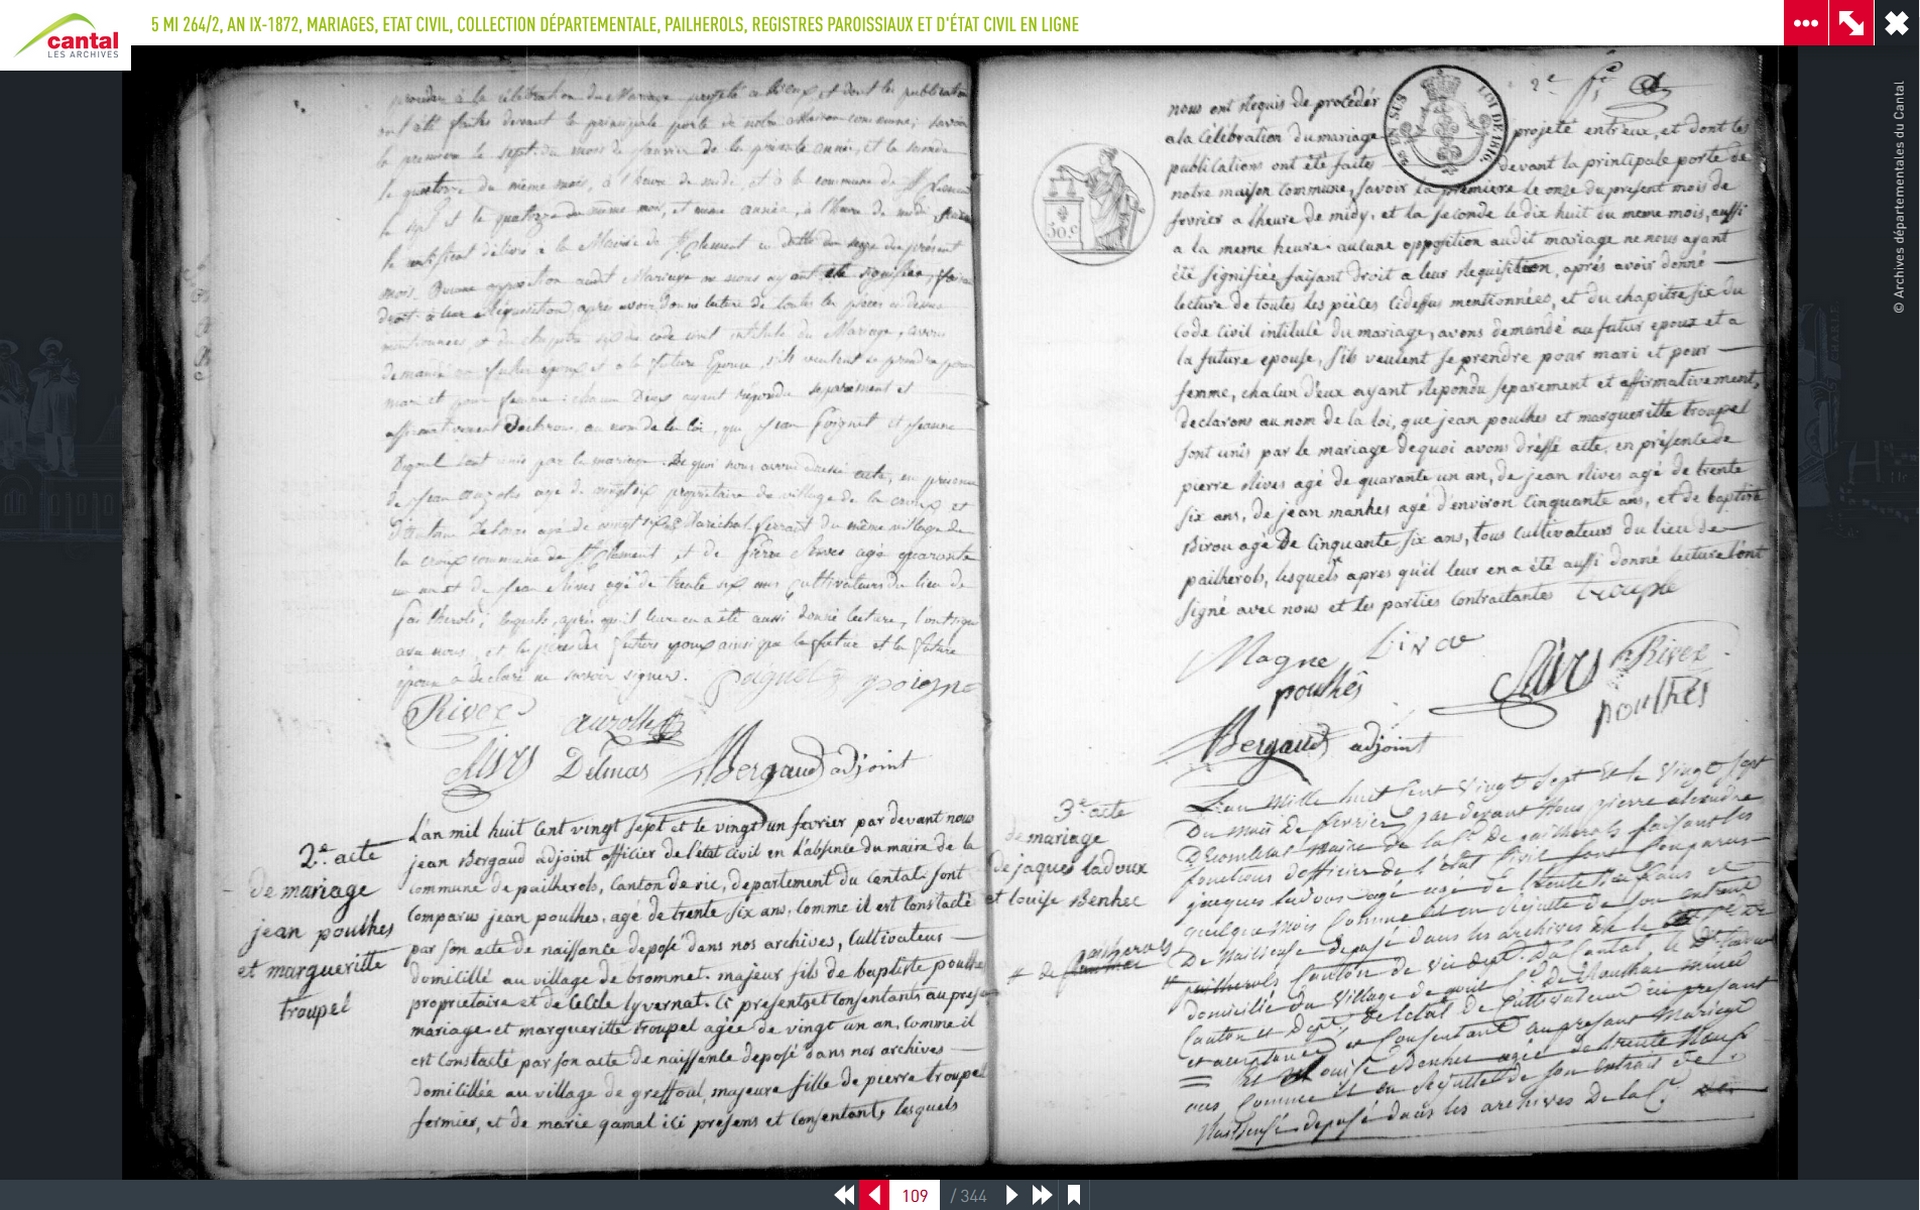 5 MI 264/2, AN IX-1872, MARIAGES, ETAT CIVIL, COLLECTION DÉPARTEMENTALE, PAILHEROLS, REGISTRES PAROISSIAUX ET D'ÉTAT CIVIL EN LIGNE
cantal
LES ARCHIVES
© Archives départementales du Cantal
proceder à la célébration du Mariage projeté et dont les publications
ont été faites devant la principale porte de notre Maison commune; savoir
la premiere le sept du mois de janvier de la présente année, et la seconde
le quatorze du même mois, à l'heure de midi, et à la commune de
le sept et le quatorze du même mois, et même année, à l'heure de midi
le certificat délivré a la Mairie de St Clement en datte du seize du présent
mois. Aucune opposition audit Mariage ne nous ayant été signifiée, faisant
droit à leur Réquisition, après avoir donné lecture de toutes les pieces ci dessus
mentionnées, et du chapitre six du code civil intitulé du Mariage, avons
demandé au futur époux et a la future Epouse, s'ils veulent se prendre pour
mari et pour femme: chacun D'eux ayant répondu separément et
affirmativement Déclarons, au nom de la loi, que Jean Poignet et Jeanne
sont unis par le mariage. De quoi nous avons dressé acte, en présence
de Jean auzolle agé de vingt six propriétaire du village de la croux et
Delmas agé de vingt Maréchal ferrant du même village de
la croux commune de St Clement et de Pierre Rives agé quarante
un an et de Jean Rives agé de trente six ans cultivateurs du lieu de
Pailherols, lesquels, après qu'il leur en a été aussi donné lecture, l'ont signé
avec nous, et les pères des futurs époux ainsi que le futur et la future
épouse a declaré ne savoir signer.
Rives auzolle
Rives Delmas Bergaud adjoint
2.e acte
de mariage
jean poulhes
et margueritte
troupel
L'an mil huit cent vingt sept et le vingt un fevrier par devant nous
jean Bergaud adjoint officier de l'état civil en l'absence du maire de la
commune de pailherols, Canton de vic, departement du Cantal. sont
Comparus jean poulhes, agé de trente six ans, comme il est constaté
par son acte de naissance deposé dans nos archives, Cultivateur
domicilié au village de brommet. majeur fils de baptiste poulhes
proprietaire et de Cecile lyvernat. Ci presents et consentants au present
mariage. et margueritte troupel agée de vingt un an, comme il
est constaté par son acte de naissance deposé dans nos archives
domicillée au village de greffoul, majeure fille de pierre troupel
fermier, et de marie gamel ici présens et consentants lesquels
2e
EN SUS LOI DE 1816.
nous ont requis de proceder
a la celebration du mariage projeté entr'eux, et dont les
publications ont été faites devant la principale porte de
notre maison Commune, savoir la premiere le onze du present mois de
fevrier a l'heure de midy. et la seconde le dix huit du meme mois, aussi
a la meme heure. aucune opposition audit mariage ne nous ayant
été signifiée, faisant droit a leur requisition, aprés avoir donné
lecture de toutes les pièces cidessus mentionnées, et du chapitre six du
Code Civil intitulé du mariage, avons demandé au futur epoux et a
la future epouse, s'ils veulent se prendre pour mari et pour
femme, chacun d'eux ayant repondu separement et affirmativement,
declarons au nom de la loi, que jean poulhes et margueritte troupel
sont unis par le mariage de quoi avons dréssé acte, en présence de
pierre Rives agé de quarante un an, de jean Rives agé de trente
six ans, de jean manhes agé d'environ Cinquante ans, et de baptiste
Birou agé de Cinquante six ans, tous Cultivateurs du lieu de
pailherols, lesquels apres qu'il leur en a été aussi donné lecture l'ont
signé avec nous et les parties Contractantes
Magne
poulhes Rives Rives
poulhés
Bergaud adjoint
3.e acte
de mariage
de jaques ladoux
et louise Benhec
# de pailherols
L'an Mille huit Cent Vingt Sept Et le Vingt Sept
Du mois De fevrier, par devant Nous pierre alexandre
Maire de la Cne De pailherols faisant les
fonctions d'officier de l'état Civil sont Comparus
jacques ladoux agé de trente ans et
quelques mois Comme il en Résulte de son extrait
De Naissance déposé dans les archives de la
pailherols Canton de Vic dept. Du Cantal le
domicilié du Village de
Canton et Dept. Cultivateur ici présent
et Consentant au present Mariage
Et Louise Benhec agée de trente Neuf
ans Comme il en Résulte de son extrait de
Naissance déposé dans les archives De la C.
109 / 344